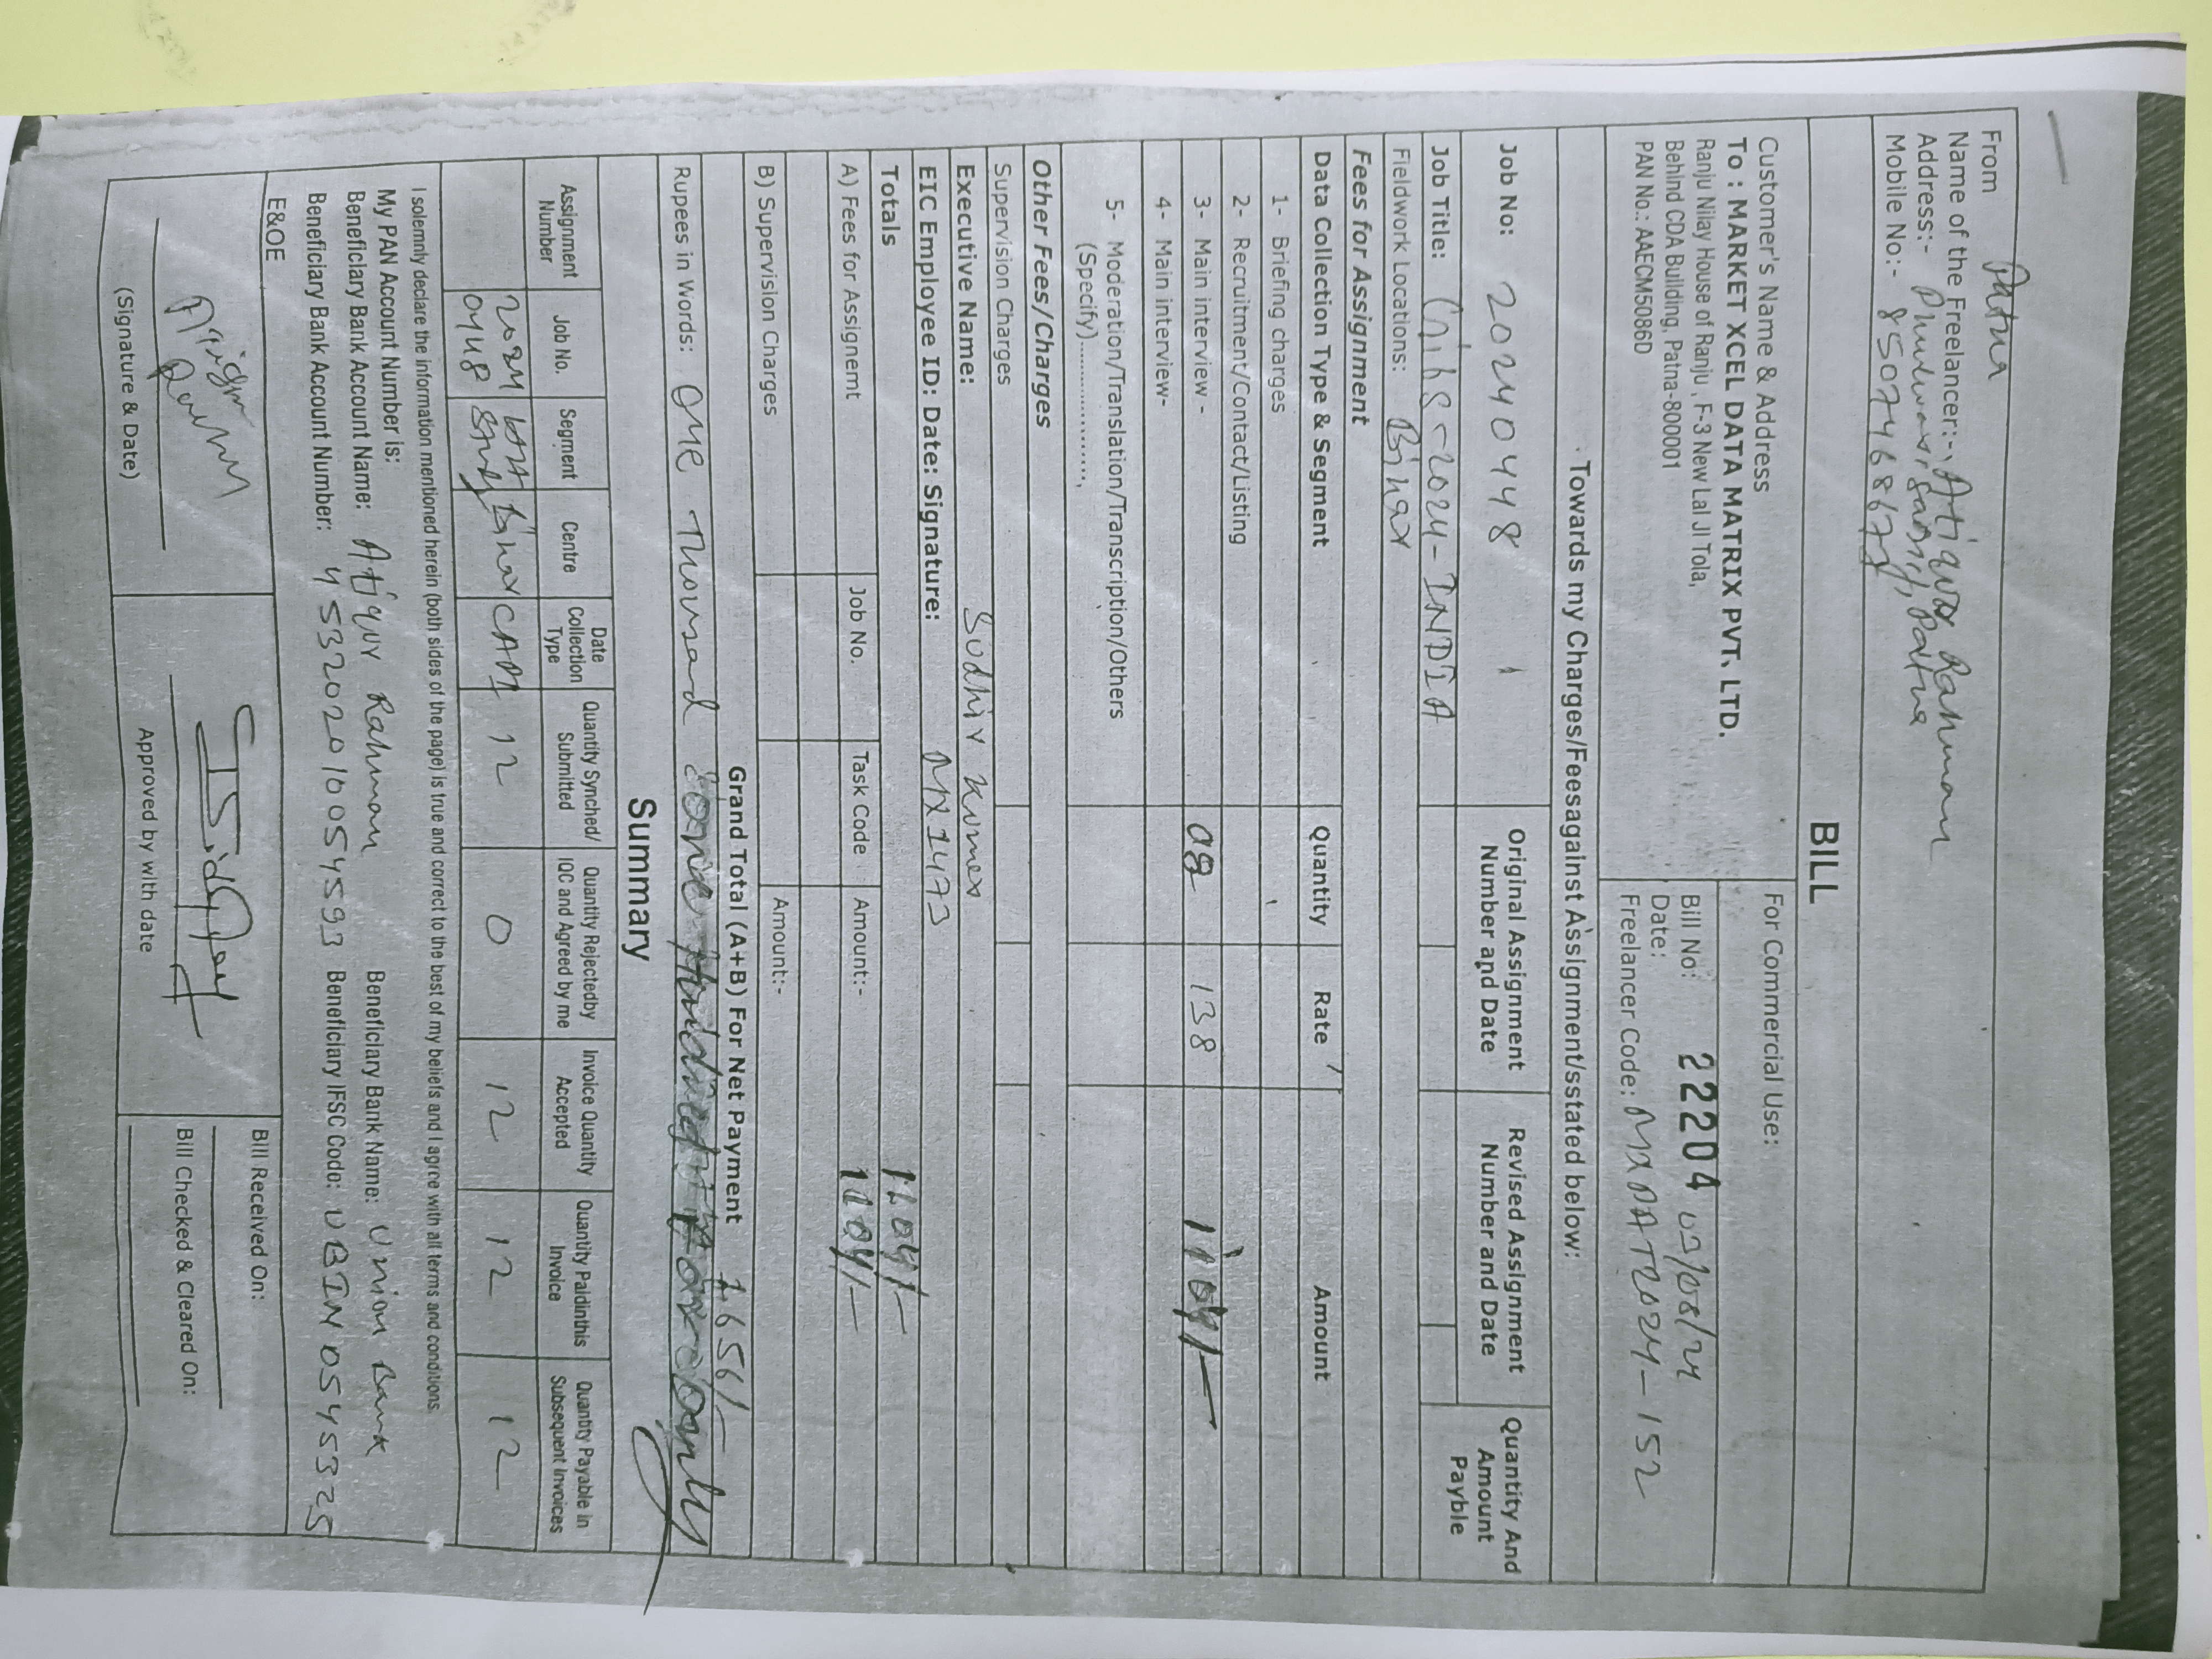 Patna
From
Name of the Freelancer:- Atiqur Rahman
Address:- Patna
Mobile No:-
BILL
Customer's Name & Address
For Commercial Use:
To : MARKET XCEL DATA MATRIX PVT. LTD.
Ranju Nilay House of Ranju , F-3 New Lal JI Tola,
Behind CDA Building, Patna-800001
PAN No.: AAECM5086D
Bill No: 22204
Date: 03/08/24
Freelancer Code: MXPAT2024-152
Towards my Charges/Feesagainst Assignment/sstated below:
Job No: 20240448
Original Assignment Number and Date
Revised Assignment Number and Date
Quantity And Amount Payble
Job Title: -2024-INDIA
Fieldwork Locations: Bihar
Fees for Assignment
Data Collection Type & Segment Quantity Rate Amount
1- Briefing charges
2- Recruitment/Contact/Listing
3- Main interview - 138 1104/-
4- Main interview-
5- Moderation/Translation/Transcription/Others
(Specify)................,
Other Fees/Charges
Supervision Charges
Executive Name: Sudhir Kumar
EIC Employee ID: Date: Signature: MX1473
Totals 1104/-
A) Fees for Assignemt Job No. Task Code Amount:- 1104/-
B) Supervision Charges Amount:-
Grand Total (A+B) For Net Payment 1656/-
Rupees in Words: One Thousand only
Summary
Assignment Number Job No. Segment Centre Date Collection Type Quantity Synched/ Submitted Quantity Rejectedby IQC and Agreed by me Invoice Quantity Accepted Quantity Paidinthis Invoice Quantity Payable in Subsequent Invoices
2024 Bihar CAPI 12 0 12 12 12
0448
I solemnly declare the information mentioned herein (both sides of the page) is true and correct to the best of my beliefs and I agree with all terms and conditions.
My PAN Account Number is:
Beneficiary Bank Account Name: Atiqur Rahman Beneficiary Bank Name: Union Bank
Beneficiary Bank Account Number: 453202010054593 Beneficiary IFSC Codo: UBIN0545325
E&OE
Bill Received On:
Bill Checked & Cleared On:
(Signature & Date)
Approved by with date